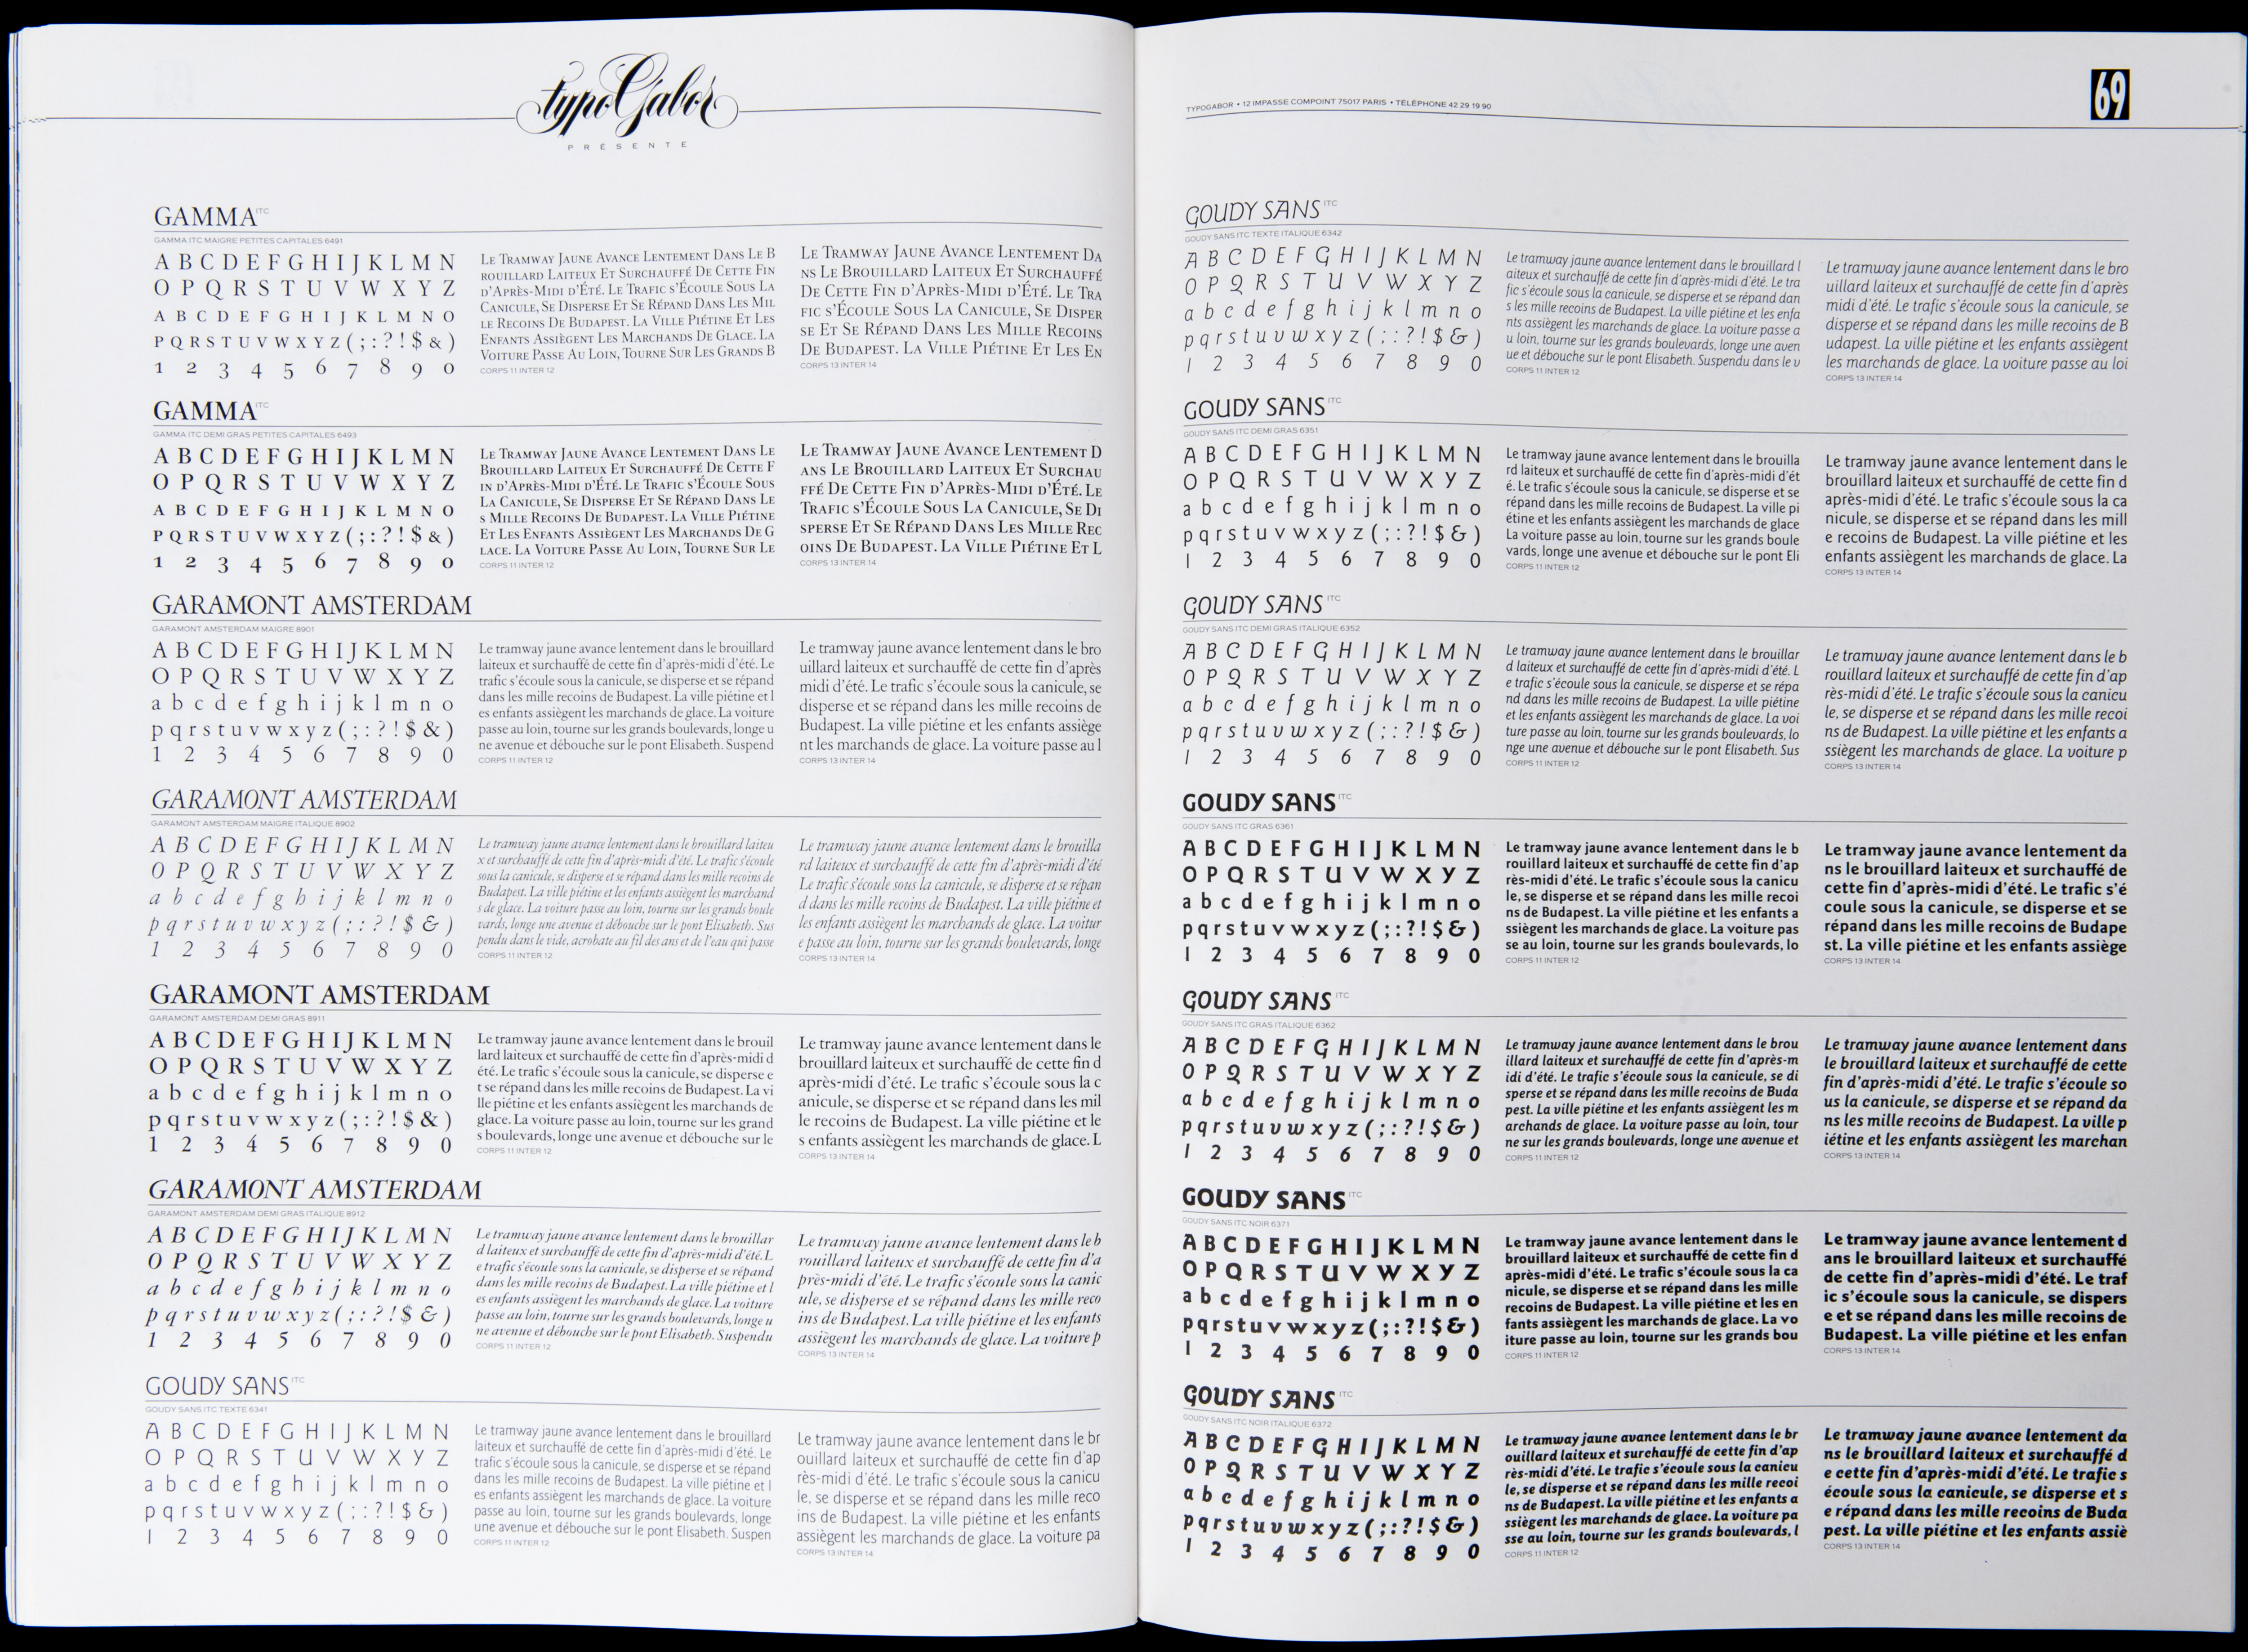 typoGabor
PRÉSENTE
GAMMA ITC
GAMMA ITC MAIGRE PETITES CAPITALES 6491
A B C D E F G H I J K L M N
O P Q R S T U V W X Y Z
A B C D E F G H I J K L M N O
P Q R S T U V W X Y Z ( ; : ? ! $ & )
1 2 3 4 5 6 7 8 9 0
LE TRAMWAY JAUNE AVANCE LENTEMENT DANS LE B
ROUILLARD LAITEUX ET SURCHAUFFÉ DE CETTE FIN
D'APRÈS-MIDI D'ÉTÉ. LE TRAFIC S'ÉCOULE SOUS LA
CANICULE, SE DISPERSE ET SE RÉPAND DANS LES MIL
LE RECOINS DE BUDAPEST. LA VILLE PIÉTINE ET LES
ENFANTS ASSIÈGENT LES MARCHANDS DE GLACE. LA
VOITURE PASSE AU LOIN, TOURNE SUR LES GRANDS B
CORPS 11 INTER 12
LE TRAMWAY JAUNE AVANCE LENTEMENT DA
NS LE BROUILLARD LAITEUX ET SURCHAUFFÉ
DE CETTE FIN D'APRÈS-MIDI D'ÉTÉ. LE TRA
FIC S'ÉCOULE SOUS LA CANICULE, SE DISPER
SE ET SE RÉPAND DANS LES MILLE RECOINS
DE BUDAPEST. LA VILLE PIÉTINE ET LES EN
CORPS 13 INTER 14
GAMMA ITC
GAMMA ITC DEMI GRAS PETITES CAPITALES 6493
A B C D E F G H I J K L M N
O P Q R S T U V W X Y Z
A B C D E F G H I J K L M N O
P Q R S T U V W X Y Z ( ; : ? ! $ & )
1 2 3 4 5 6 7 8 9 0
LE TRAMWAY JAUNE AVANCE LENTEMENT DANS LE
BROUILLARD LAITEUX ET SURCHAUFFÉ DE CETTE F
IN D'APRÈS-MIDI D'ÉTÉ. LE TRAFIC S'ÉCOULE SOUS
LA CANICULE, SE DISPERSE ET SE RÉPAND DANS LE
S MILLE RECOINS DE BUDAPEST. LA VILLE PIÉTINE
ET LES ENFANTS ASSIÈGENT LES MARCHANDS DE G
LACE. LA VOITURE PASSE AU LOIN, TOURNE SUR LE
CORPS 11 INTER 12
LE TRAMWAY JAUNE AVANCE LENTEMENT D
ANS LE BROUILLARD LAITEUX ET SURCHAU
FFÉ DE CETTE FIN D'APRÈS-MIDI D'ÉTÉ. LE
TRAFIC S'ÉCOULE SOUS LA CANICULE, SE DI
SPERSE ET SE RÉPAND DANS LES MILLE REC
OINS DE BUDAPEST. LA VILLE PIÉTINE ET L
CORPS 13 INTER 14
GARAMONT AMSTERDAM
GARAMONT AMSTERDAM MAIGRE 8901
A B C D E F G H I J K L M N
O P Q R S T U V W X Y Z
a b c d e f g h i j k l m n o
p q r s t u v w x y z ( ; : ? ! $ & )
1 2 3 4 5 6 7 8 9 0
Le tramway jaune avance lentement dans le brouillard
laiteux et surchauffé de cette fin d'après-midi d'été. Le
trafic s'écoule sous la canicule, se disperse et se répand
dans les mille recoins de Budapest. La ville piétine et l
es enfants assiègent les marchands de glace. La voiture
passe au loin, tourne sur les grands boulevards, longe u
ne avenue et débouche sur le pont Elisabeth. Suspend
CORPS 11 INTER 12
Le tramway jaune avance lentement dans le bro
uillard laiteux et surchauffé de cette fin d'après
midi d'été. Le trafic s'écoule sous la canicule, se
disperse et se répand dans les mille recoins de
Budapest. La ville piétine et les enfants assiège
nt les marchands de glace. La voiture passe au l
CORPS 13 INTER 14
GARAMONT AMSTERDAM
GARAMONT AMSTERDAM MAIGRE ITALIQUE 8902
A B C D E F G H I J K L M N
O P Q R S T U V W X Y Z
a b c d e f g h i j k l m n o
p q r s t u v w x y z ( ; : ? ! $ & )
1 2 3 4 5 6 7 8 9 0
Le tramway jaune avance lentement dans le brouillard laiteu
x et surchauffé de cette fin d'après-midi d'été. Le trafic s'écoule
sous la canicule, se disperse et se répand dans les mille recoins de
Budapest. La ville piétine et les enfants assiègent les marchand
s de glace. La voiture passe au loin, tourne sur les grands boule
vards, longe une avenue et débouche sur le pont Elisabeth. Sus
pendu dans le vide, acrobate au fil des ans et de l'eau qui passe
CORPS 11 INTER 12
Le tramway jaune avance lentement dans le brouilla
rd laiteux et surchauffé de cette fin d'après-midi d'été
Le trafic s'écoule sous la canicule, se disperse et se répan
d dans les mille recoins de Budapest. La ville piétine et
les enfants assiègent les marchands de glace. La voitur
e passe au loin, tourne sur les grands boulevards, longe
CORPS 13 INTER 14
GARAMONT AMSTERDAM
GARAMONT AMSTERDAM DEMI GRAS 8911
A B C D E F G H I J K L M N
O P Q R S T U V W X Y Z
a b c d e f g h i j k l m n o
p q r s t u v w x y z ( ; : ? ! $ & )
1 2 3 4 5 6 7 8 9 0
Le tramway jaune avance lentement dans le brouil
lard laiteux et surchauffé de cette fin d'après-midi d
été. Le trafic s'écoule sous la canicule, se disperse e
t se répand dans les mille recoins de Budapest. La vi
lle piétine et les enfants assiègent les marchands de
glace. La voiture passe au loin, tourne sur les grand
s boulevards, longe une avenue et débouche sur le
CORPS 11 INTER 12
Le tramway jaune avance lentement dans le
brouillard laiteux et surchauffé de cette fin d
après-midi d'été. Le trafic s'écoule sous la c
anicule, se disperse et se répand dans les mil
le recoins de Budapest. La ville piétine et le
s enfants assiègent les marchands de glace. L
CORPS 13 INTER 14
GARAMONT AMSTERDAM
GARAMONT AMSTERDAM DEMI GRAS ITALIQUE 8912
A B C D E F G H I J K L M N
O P Q R S T U V W X Y Z
a b c d e f g h i j k l m n o
p q r s t u v w x y z ( ; : ? ! $ & )
1 2 3 4 5 6 7 8 9 0
Le tramway jaune avance lentement dans le brouillar
d laiteux et surchauffé de cette fin d'après-midi d'été. L
e trafic s'écoule sous la canicule, se disperse et se répand
dans les mille recoins de Budapest. La ville piétine et l
es enfants assiègent les marchands de glace. La voiture
passe au loin, tourne sur les grands boulevards, longe u
ne avenue et débouche sur le pont Elisabeth. Suspendu
CORPS 11 INTER 12
Le tramway jaune avance lentement dans le b
rouillard laiteux et surchauffé de cette fin d'a
près-midi d'été. Le trafic s'écoule sous la canic
ule, se disperse et se répand dans les mille reco
ins de Budapest. La ville piétine et les enfants
assiègent les marchands de glace. La voiture p
CORPS 13 INTER 14
GOUDY SANS ITC
GOUDY SANS ITC TEXTE 6341
A B C D E F G H I J K L M N
O P Q R S T U V W X Y Z
a b c d e f g h i j k l m n o
p q r s t u v w x y z ( ; : ? ! $ & )
1 2 3 4 5 6 7 8 9 0
Le tramway jaune avance lentement dans le brouillard
laiteux et surchauffé de cette fin d'après-midi d'été. Le
trafic s'écoule sous la canicule, se disperse et se répand
dans les mille recoins de Budapest. La ville piétine et l
es enfants assiègent les marchands de glace. La voiture
passe au loin, tourne sur les grands boulevards, longe
une avenue et débouche sur le pont Elisabeth. Suspen
CORPS 11 INTER 12
Le tramway jaune avance lentement dans le br
ouillard laiteux et surchauffé de cette fin d'ap
rès-midi d'été. Le trafic s'écoule sous la canicu
le, se disperse et se répand dans les mille reco
ins de Budapest. La ville piétine et les enfants
assiègent les marchands de glace. La voiture pa
CORPS 13 INTER 14
TYPOGABOR • 12 IMPASSE COMPOINT 75017 PARIS • TÉLÉPHONE 42 29 19 90
69
GOUDY SANS ITC
GOUDY SANS ITC TEXTE ITALIQUE 6342
A B C D E F G H I J K L M N
O P Q R S T U V W X Y Z
a b c d e f g h i j k l m n o
p q r s t u v w x y z ( ; : ? ! $ & )
1 2 3 4 5 6 7 8 9 0
Le tramway jaune avance lentement dans le brouillard l
aiteux et surchauffé de cette fin d'après-midi d'été. Le tra
fic s'écoule sous la canicule, se disperse et se répand dan
s les mille recoins de Budapest. La ville piétine et les enfa
nts assiègent les marchands de glace. La voiture passe a
u loin, tourne sur les grands boulevards, longe une aven
ue et débouche sur le pont Elisabeth. Suspendu dans le v
CORPS 11 INTER 12
Le tramway jaune avance lentement dans le bro
uillard laiteux et surchauffé de cette fin d'après
midi d'été. Le trafic s'écoule sous la canicule, se
disperse et se répand dans les mille recoins de B
udapest. La ville piétine et les enfants assiègent
les marchands de glace. La voiture passe au loi
CORPS 13 INTER 14
GOUDY SANS ITC
GOUDY SANS ITC DEMI GRAS 6351
A B C D E F G H I J K L M N
O P Q R S T U V W X Y Z
a b c d e f g h i j k l m n o
p q r s t u v w x y z ( ; : ? ! $ & )
1 2 3 4 5 6 7 8 9 0
Le tramway jaune avance lentement dans le brouilla
rd laiteux et surchauffé de cette fin d'après-midi d'ét
é. Le trafic s'écoule sous la canicule, se disperse et se
répand dans les mille recoins de Budapest. La ville pi
étine et les enfants assiègent les marchands de glace
La voiture passe au loin, tourne sur les grands boule
vards, longe une avenue et débouche sur le pont Eli
CORPS 11 INTER 12
Le tramway jaune avance lentement dans le
brouillard laiteux et surchauffé de cette fin d
après-midi d'été. Le trafic s'écoule sous la ca
nicule, se disperse et se répand dans les mill
e recoins de Budapest. La ville piétine et les
enfants assiègent les marchands de glace. La
CORPS 13 INTER 14
GOUDY SANS ITC
GOUDY SANS ITC DEMI GRAS ITALIQUE 6352
A B C D E F G H I J K L M N
O P Q R S T U V W X Y Z
a b c d e f g h i j k l m n o
p q r s t u v w x y z ( ; : ? ! $ & )
1 2 3 4 5 6 7 8 9 0
Le tramway jaune avance lentement dans le brouillar
d laiteux et surchauffé de cette fin d'après-midi d'été. L
e trafic s'écoule sous la canicule, se disperse et se répa
nd dans les mille recoins de Budapest. La ville piétine
et les enfants assiègent les marchands de glace. La voi
ture passe au loin, tourne sur les grands boulevards, lo
nge une avenue et débouche sur le pont Elisabeth. Sus
CORPS 11 INTER 12
Le tramway jaune avance lentement dans le b
rouillard laiteux et surchauffé de cette fin d'ap
rès-midi d'été. Le trafic s'écoule sous la canicu
le, se disperse et se répand dans les mille recoi
ns de Budapest. La ville piétine et les enfants a
ssiègent les marchands de glace. La voiture p
CORPS 13 INTER 14
GOUDY SANS ITC
GOUDY SANS ITC GRAS 6361
A B C D E F G H I J K L M N
O P Q R S T U V W X Y Z
a b c d e f g h i j k l m n o
p q r s t u v w x y z ( ; : ? ! $ & )
1 2 3 4 5 6 7 8 9 0
Le tramway jaune avance lentement dans le b
rouillard laiteux et surchauffé de cette fin d'ap
rès-midi d'été. Le trafic s'écoule sous la canicu
le, se disperse et se répand dans les mille recoi
ns de Budapest. La ville piétine et les enfants a
ssiègent les marchands de glace. La voiture pas
se au loin, tourne sur les grands boulevards, lo
CORPS 11 INTER 12
Le tramway jaune avance lentement da
ns le brouillard laiteux et surchauffé de
cette fin d'après-midi d'été. Le trafic s'é
coule sous la canicule, se disperse et se
répand dans les mille recoins de Budape
st. La ville piétine et les enfants assiège
CORPS 13 INTER 14
GOUDY SANS ITC
GOUDY SANS ITC GRAS ITALIQUE 6362
A B C D E F G H I J K L M N
O P Q R S T U V W X Y Z
a b c d e f g h i j k l m n o
p q r s t u v w x y z ( ; : ? ! $ & )
1 2 3 4 5 6 7 8 9 0
Le tramway jaune avance lentement dans le brou
illard laiteux et surchauffé de cette fin d'après-m
idi d'été. Le trafic s'écoule sous la canicule, se di
sperse et se répand dans les mille recoins de Buda
pest. La ville piétine et les enfants assiègent les m
archands de glace. La voiture passe au loin, tour
ne sur les grands boulevards, longe une avenue et
CORPS 11 INTER 12
Le tramway jaune avance lentement dans
le brouillard laiteux et surchauffé de cette
fin d'après-midi d'été. Le trafic s'écoule so
us la canicule, se disperse et se répand da
ns les mille recoins de Budapest. La ville p
iétine et les enfants assiègent les marchan
CORPS 13 INTER 14
GOUDY SANS ITC
GOUDY SANS ITC NOIR 6371
A B C D E F G H I J K L M N
O P Q R S T U V W X Y Z
a b c d e f g h i j k l m n o
p q r s t u v w x y z ( ; : ? ! $ & )
1 2 3 4 5 6 7 8 9 0
Le tramway jaune avance lentement dans le
brouillard laiteux et surchauffé de cette fin d
après-midi d'été. Le trafic s'écoule sous la ca
nicule, se disperse et se répand dans les mille
recoins de Budapest. La ville piétine et les en
fants assiègent les marchands de glace. La vo
iture passe au loin, tourne sur les grands bou
CORPS 11 INTER 12
Le tramway jaune avance lentement d
ans le brouillard laiteux et surchauffé
de cette fin d'après-midi d'été. Le traf
ic s'écoule sous la canicule, se dispers
e et se répand dans les mille recoins de
Budapest. La ville piétine et les enfan
CORPS 13 INTER 14
GOUDY SANS ITC
GOUDY SANS ITC NOIR ITALIQUE 6372
A B C D E F G H I J K L M N
O P Q R S T U V W X Y Z
a b c d e f g h i j k l m n o
p q r s t u v w x y z ( ; : ? ! $ & )
1 2 3 4 5 6 7 8 9 0
Le tramway jaune avance lentement dans le br
ouillard laiteux et surchauffé de cette fin d'ap
rès-midi d'été. Le trafic s'écoule sous la canicu
le, se disperse et se répand dans les mille recoi
ns de Budapest. La ville piétine et les enfants a
ssiègent les marchands de glace. La voiture pa
sse au loin, tourne sur les grands boulevards, l
CORPS 11 INTER 12
Le tramway jaune avance lentement da
ns le brouillard laiteux et surchauffé d
e cette fin d'après-midi d'été. Le trafic s
écoule sous la canicule, se disperse et s
e répand dans les mille recoins de Buda
pest. La ville piétine et les enfants assiè
CORPS 13 INTER 14